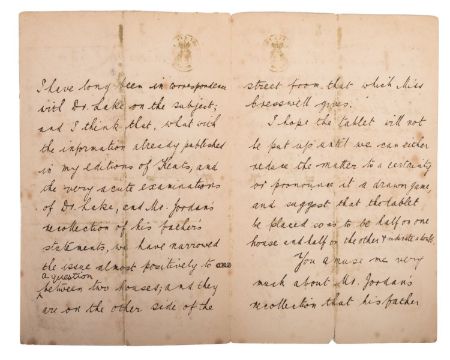 I have long been in correspondence
with Dr. Lake on the subject;
and I think that, what with
the information already published
in my editions of Keats, and
the very acute examinations
of Dr. Lake, and Mr. Jordan's
recollection of his father's
statements, we have narrowed
the issue almost positively to
a question
between two houses; and they
are on the other side of the
street from that which Miss
Cresswell gives.
I hope the tablet will not
be put up until we can either
reduce the matter to a certainty
or pronounce it a drawn game,
and suggest that the tablet
be placed so as to be half on one
house and half on the other
You amuse me very
much about Mr. Jordan's
recollection that his father